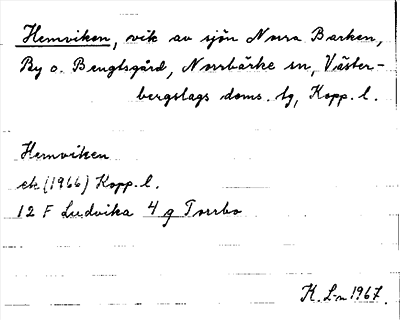 Hemviken, vik av sjön Norra Barken,
By o. Bengtsgård, Norrbärke sn, Väster-
bergslags doms. tg, Kopp. l.
Hemviken
ek (1966) Kopp. l.
12 F Ludvika 4 g Torrbo
K. L-n 1967.